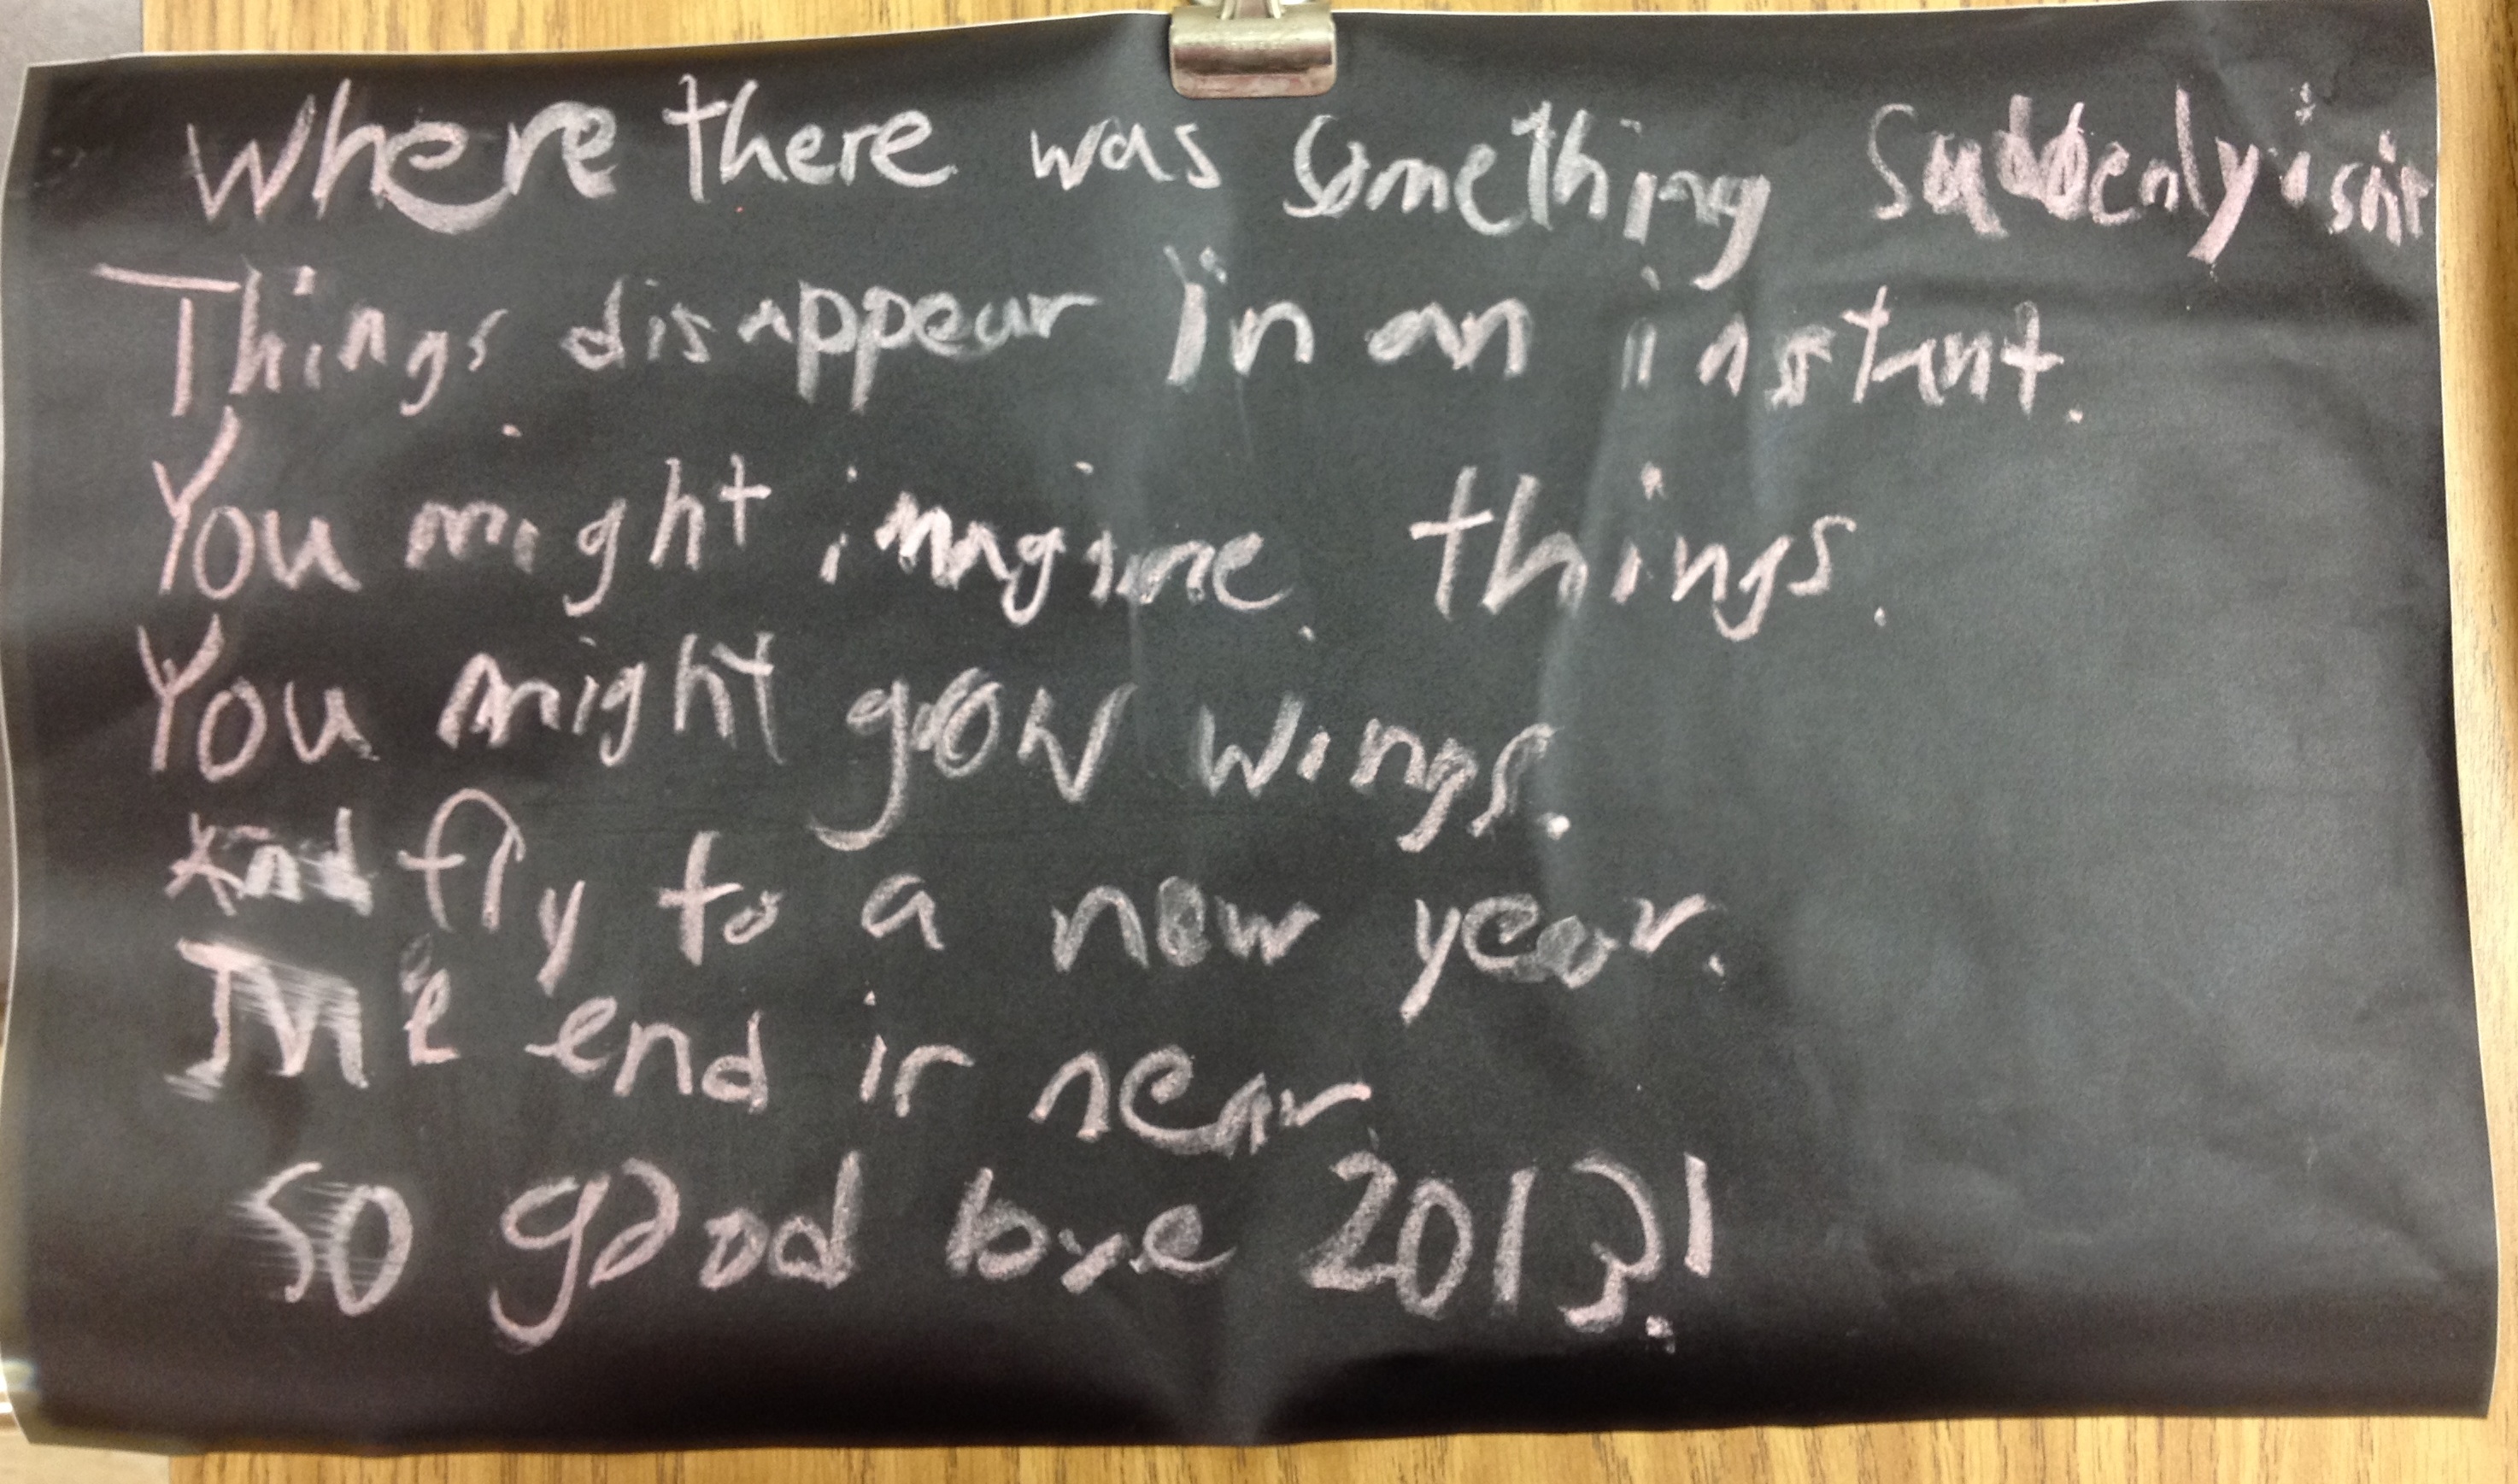 Where there was something suddenly isn't
Things disappear in an instant.
You might imagine things.
You might grow wings.
And fly to a new year.
The end is near.
So good bye 2013!